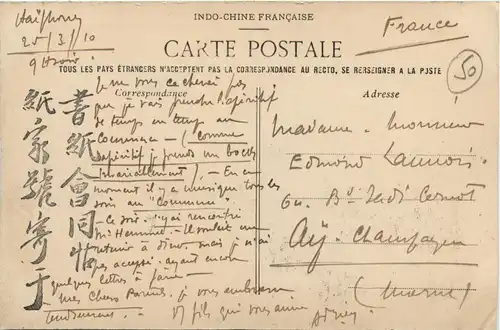 INDO-CHINE FRANÇAISE
Haïphong
25/3/10
9h soir
France
CARTE POSTALE
TOUS LES PAYS ÉTRANGERS N'ACCEPTENT PAS LA CORRESPONDANCE AU RECTO, SE RENSEIGNER A LA POSTE
50
Correspondance
Adresse
Je ne vous cacherai pas
que je vais prendre l'apéritif
de temps en temps au
Commerce - (comme
apéritif je prends un bock
). - En ce
moment il y a musique tous les
soirs au "Commerce"
- Ce soir j'y ai rencontré
Mr . Il voulait me
retenir à dîner mais je n'ai
pas accepté, ayant encore
quelques lettres à faire -
- Mes Chers Parents, je vous embrasse
tendrement. Vt fils qui vous aime
Madame. Monsieur
Edmond
Bd
Aÿ. Champagne
(Marne)
書紙會同怡
紙家號寄于